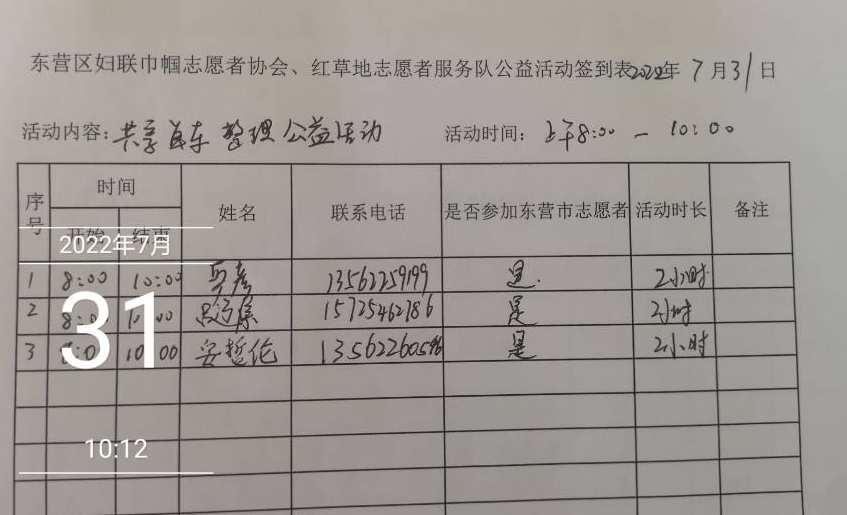 东营区妇联巾帼志愿者协会、红草地志愿者服务队公益活动签到表2022年 7月31日
活动内容：共享单车整理公益活动 活动时间：上午8:00 — 10:00
序号 时间 姓名 联系电话 是否参加东营市志愿者 活动时长 备注
开始 结束
2022年7月
1 8:00 10:00 13562259199 是. 2小时
2 8:00 10:00 15725462786 是 2小时
31
3 10:00 安哲伦 是 2小时
10:12